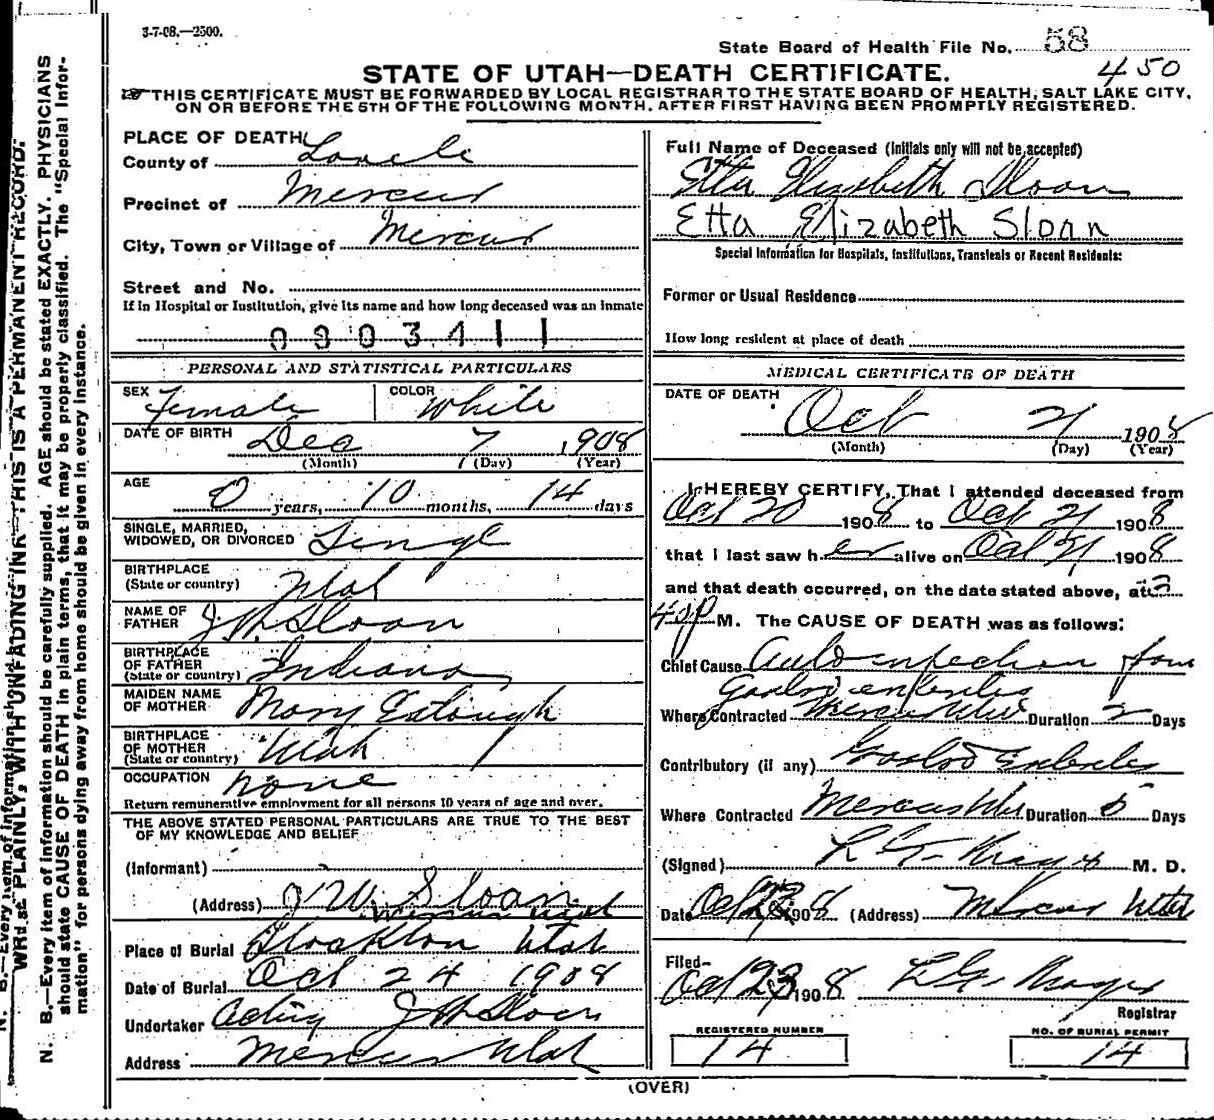 3-7-08.—2500.
State Board of Health File No. 58
450
STATE OF UTAH—DEATH CERTIFICATE.
THIS CERTIFICATE MUST BE FORWARDED BY LOCAL REGISTRAR TO THE STATE BOARD OF HEALTH, SALT LAKE CITY,
ON OR BEFORE THE 5TH OF THE FOLLOWING MONTH, AFTER FIRST HAVING BEEN PROMPTLY REGISTERED.
PLACE OF DEATH
County of Tooele
Precinct of Mercur
City, Town or Village of Mercur
Street and No.
If in Hospital or Institution, give its name and how long deceased was an inmate
PERSONAL AND STATISTICAL PARTICULARS
SEX Female COLOR White
DATE OF BIRTH Dec 7 1908
(Month) (Day) (Year)
AGE 0 years, 10 months, 14 days
SINGLE, MARRIED,
WIDOWED, OR DIVORCED Single
BIRTHPLACE
(State or country) Utah
NAME OF
FATHER J W Sloan
BIRTHPLACE
OF FATHER
(State or country) Indiana
MAIDEN NAME
OF MOTHER Mary
BIRTHPLACE
OF MOTHER
(State or country) Utah
OCCUPATION none
Return remunerative employment for all persons 10 years of age and over.
THE ABOVE STATED PERSONAL PARTICULARS ARE TRUE TO THE BEST
OF MY KNOWLEDGE AND BELIEF
(Informant)
(Address) J W Sloan
Mercur Utah
Place of Burial Stockton Utah
Date of Burial Oct 24 1908
Undertaker Acting J W Sloan
Address Mercur Utah
Full Name of Deceased (Initials only will not be accepted)
Etta Elizabeth Sloan
Etta Elizabeth Sloan
Special Information for Hospitals, Institutions, Transients or Recent Residents:
Former or Usual Residence
How long resident at place of death
MEDICAL CERTIFICATE OF DEATH
DATE OF DEATH
Oct 21 1908
(Month) (Day) (Year)
I HEREBY CERTIFY, That I attended deceased from
Oct 20 1908 to Oct 21 1908
that I last saw her alive on Oct 21 1908
and that death occurred, on the date stated above, at 3
40 p M. The CAUSE OF DEATH was as follows:
Chief Cause Auto infection from
Gastro enteritis
Where Contracted Mercur Utah Duration 2 Days
Contributory (if any) Gastro Enteritis
Where Contracted Mercur Utah Duration 5 Days
(Signed) M. D.
Date Oct 1908 (Address) Mercur Utah
Filed
Oct 23 1908
Registrar
REGISTERED NUMBER
14
NO. OF BURIAL PERMIT
14
(OVER)
N. B.—Every item of information should be carefully supplied. AGE should be stated EXACTLY. PHYSICIANS
should state CAUSE OF DEATH in plain terms, that it may be properly classified. The "Special Infor-
mation" for persons dying away from home should be given in every instance.
WRITE PLAINLY, WITH UNFADING INK—THIS IS A PERMANENT RECORD.